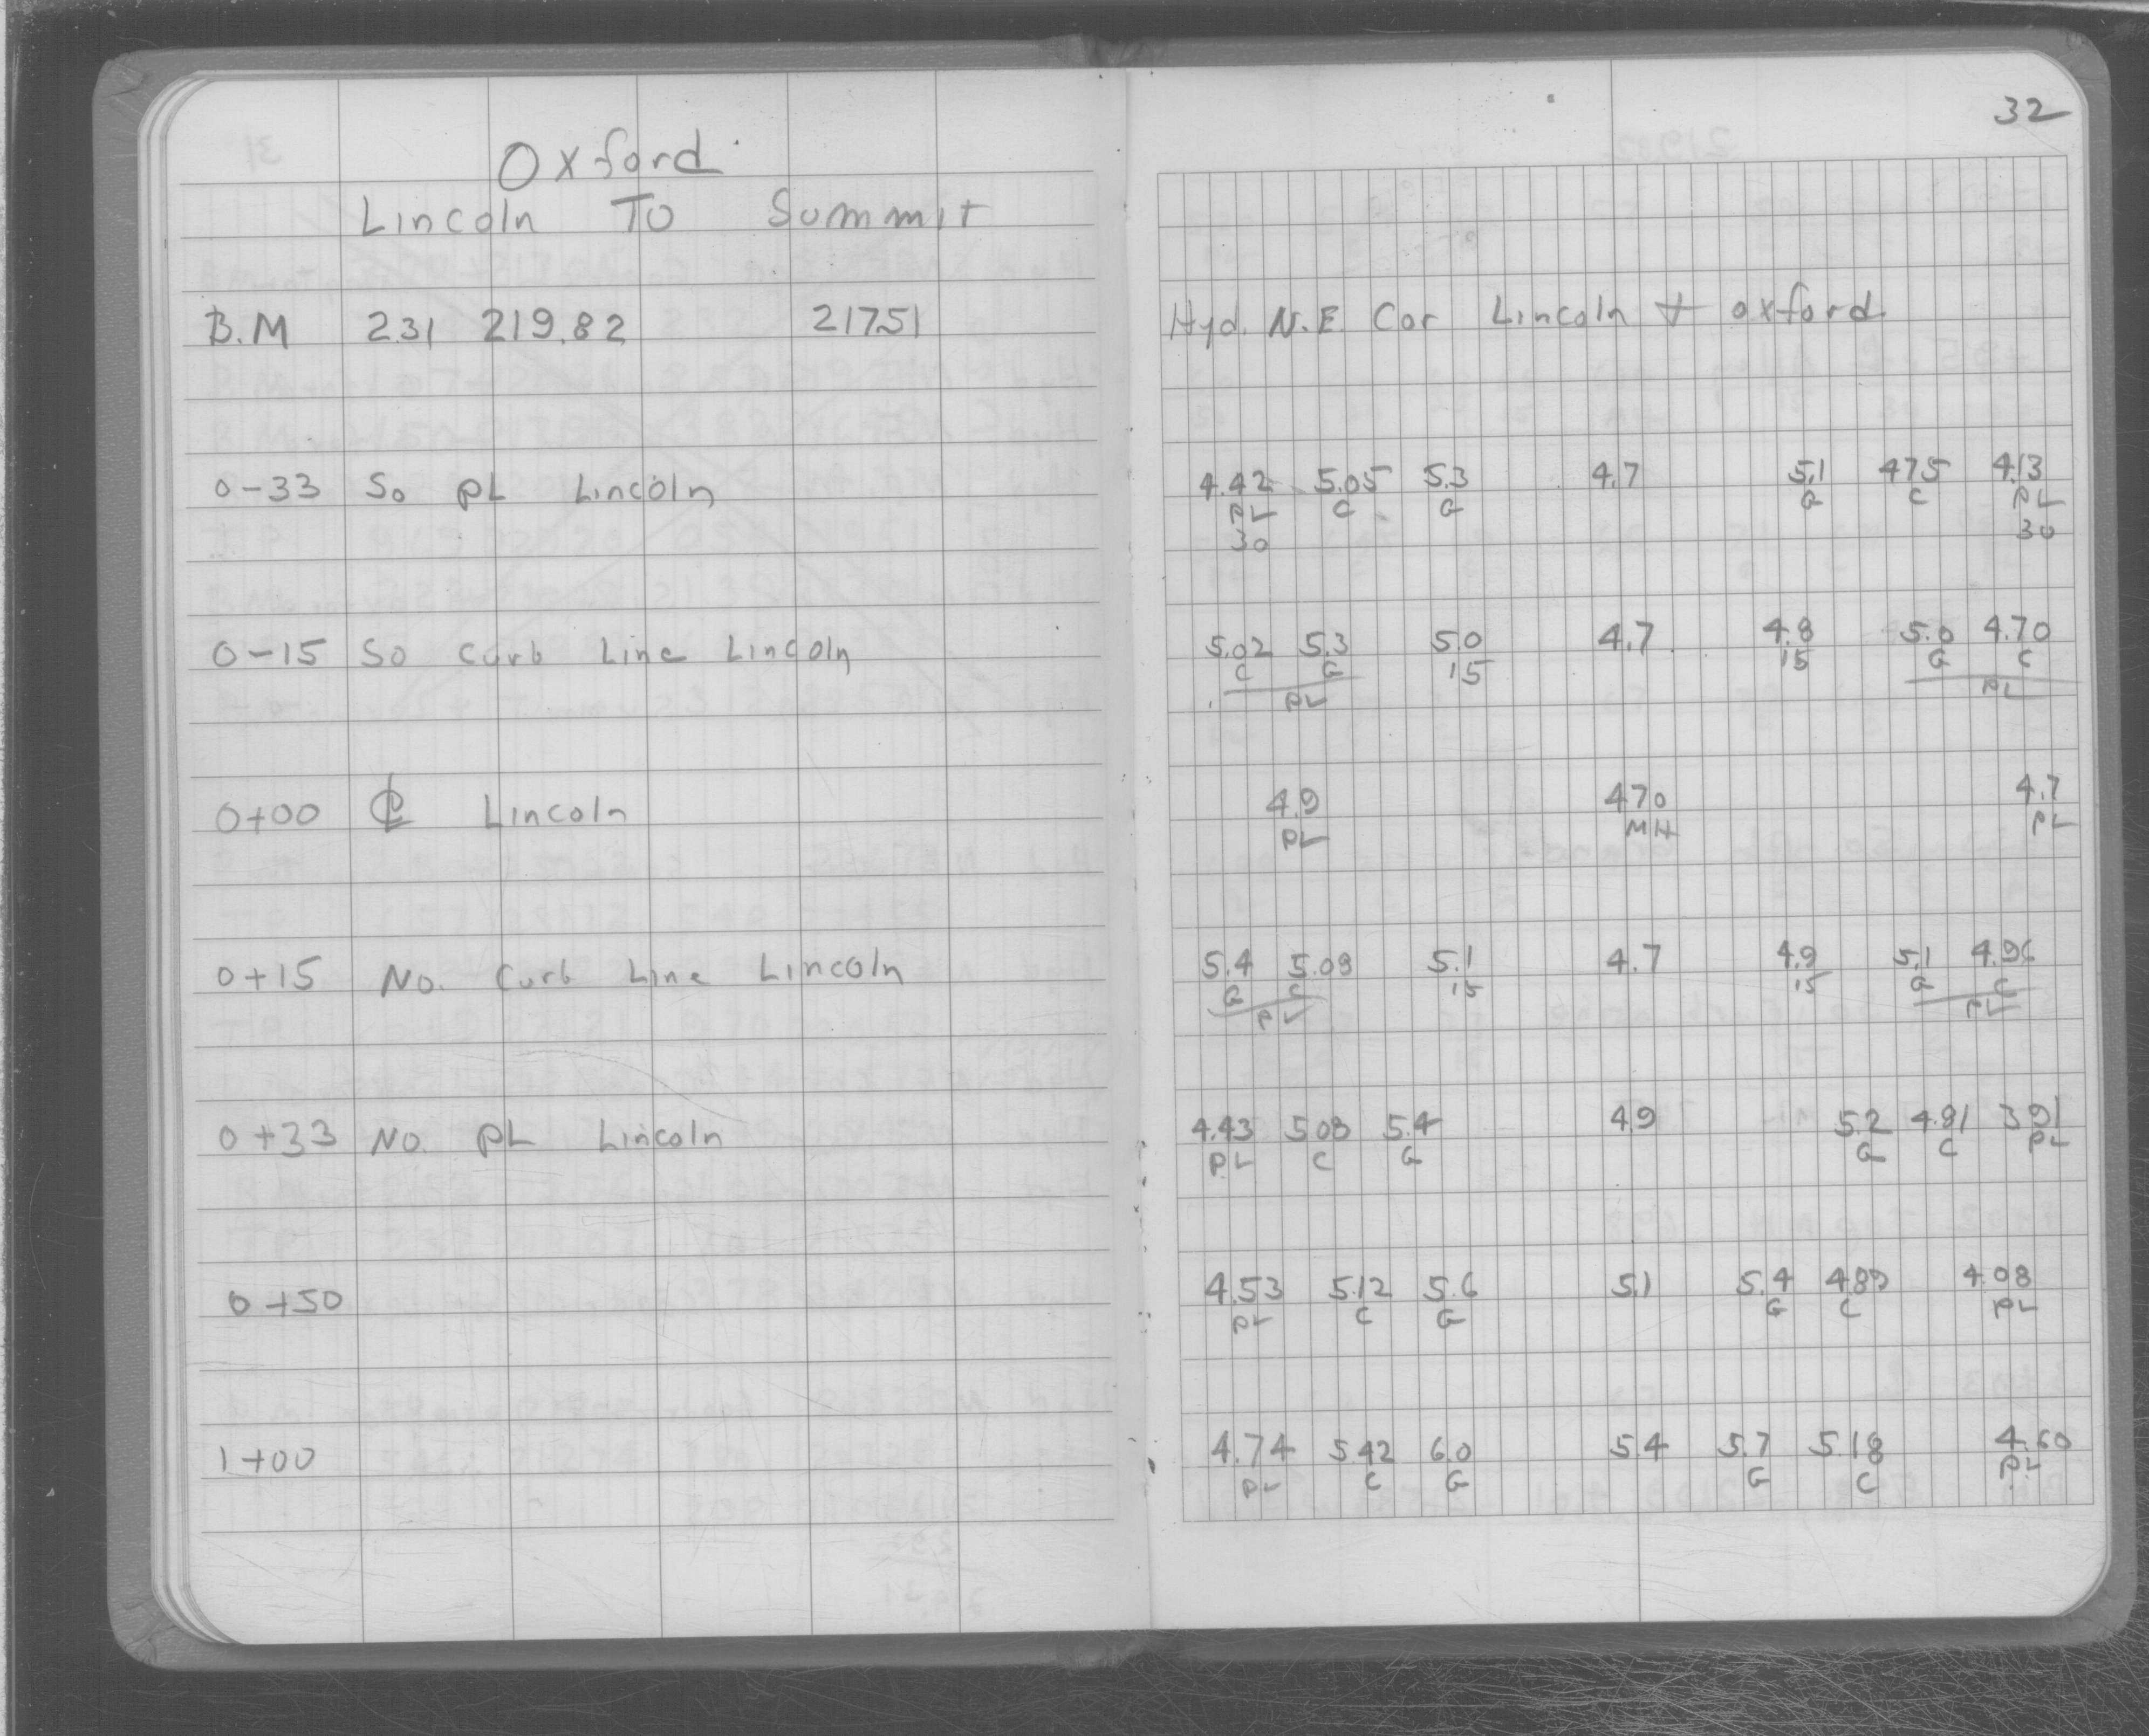 32
Oxford
Lincoln To Summit
B.M 2.31 219.82 217.51 Hyd. N.E. Cor Lincoln + Oxford
0-33 So PL Lincoln 4.42 5.05 5.3 4.7 5.1 4.75 4.13
PL C G G C PL
30 30
0-15 So Curb Line Lincoln 5.02 5.3 5.0 4.7 4.8 5.0 4.70
C G 15 15 G C
PL PL
0+00 ℄ Lincoln 4.9 4.70 4.7
PL MH PL
0+15 No. Curb Line Lincoln 5.4 5.09 5.1 4.7 4.9 5.1 4.96
G C 15 15 G C
PL PL
0+33 No. PL Lincoln 4.43 5.08 5.4 4.9 5.2 4.81 3.91
PL C G G C PL
0+50 4.53 5.12 5.6 5.1 5.4 4.08
PL C G G C PL
1+00 4.74 5.42 6.0 5.4 5.7 5.18 4.60
PL C G G C PL